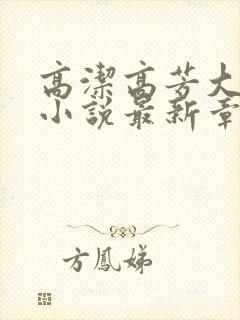 高潔高芳大
小說最新章
方鳳娣